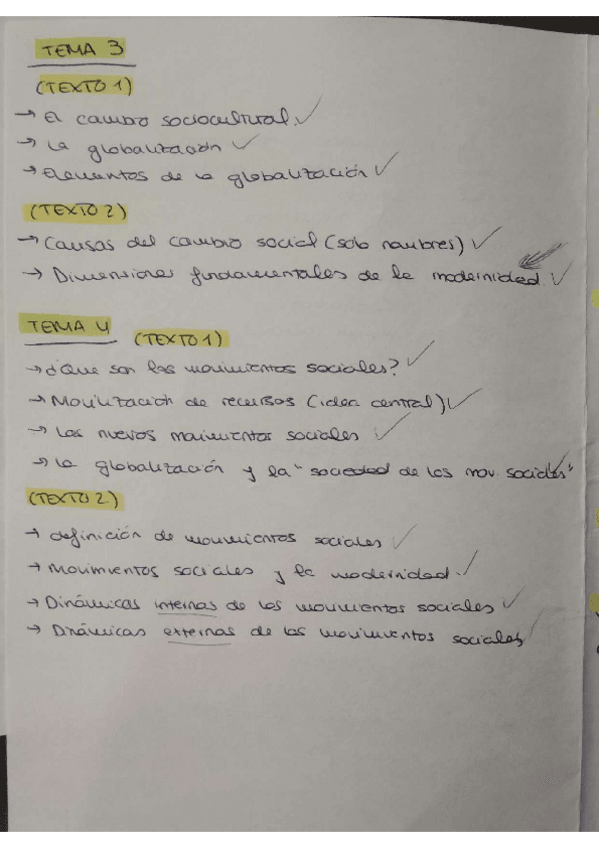 TEMA 3
(TEXTO 1)
→ El cambio sociocultural. ✓
→ La globalización ✓
→ Elementos de la globalización ✓
(TEXTO 2)
→ Causas del cambio social (solo nombres) ✓
→ Dimensiones fundamentales de la modernidad. ✓
TEMA 4 (TEXTO 1)
→ ¿Que son los movimientos sociales? ✓
→ Movilización de recursos (idea central) ✓
→ Los nuevos movimientos sociales ✓
→ La globalización y la "sociedad de los mov. sociales" ✓
(TEXTO 2)
→ definición de movimientos sociales ✓
→ Movimientos sociales y la modernidad. ✓
→ Dinámicas internas de los movimientos sociales ✓
→ Dinámicas externas de los movimientos sociales ✓